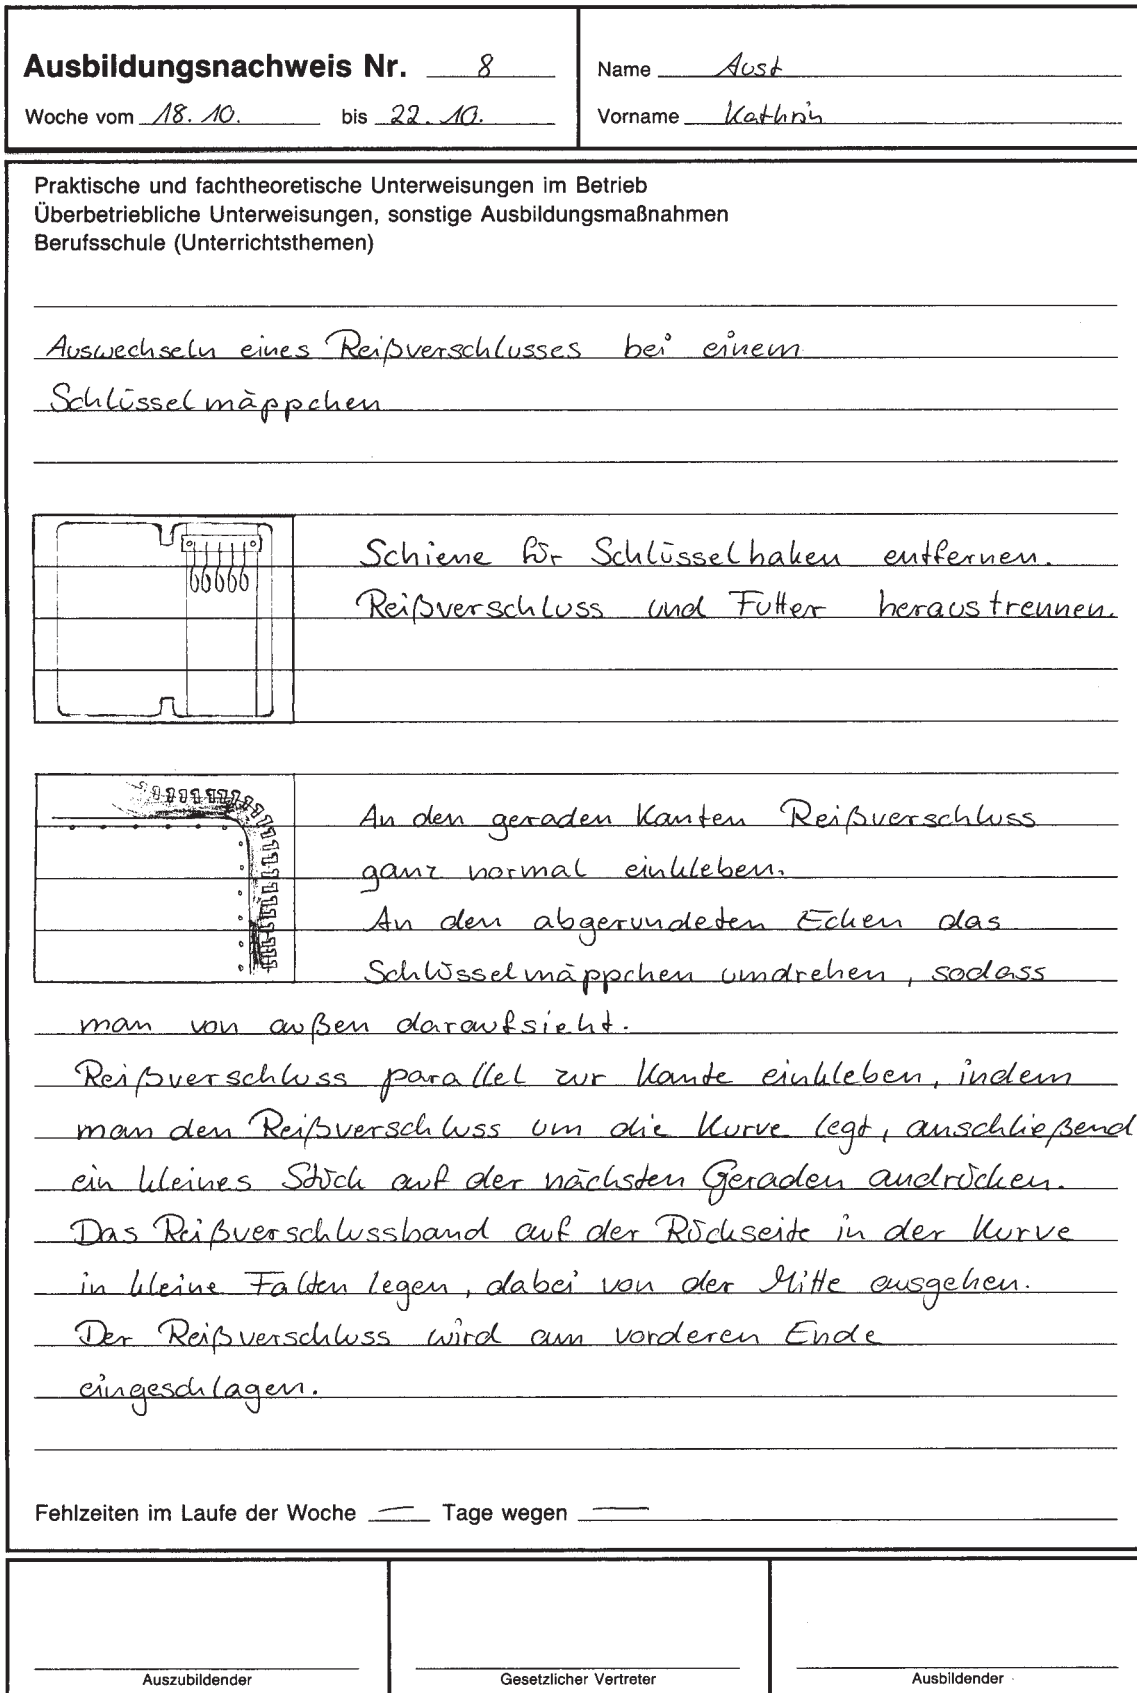 Ausbildungsnachweis Nr. 8
Woche vom 18. 10. bis 22. 10.
Name Aust
Vorname Kathrin
Praktische und fachtheoretische Unterweisungen im Betrieb
Überbetriebliche Unterweisungen, sonstige Ausbildungsmaßnahmen
Berufsschule (Unterrichtsthemen)
Auswechseln eines Reißverschlusses bei einem
Schlüsselmäppchen
Schiene für Schlüsselhaken entfernen.
Reißverschluss und Futter heraustrennen.
An den geraden Kanten Reißverschluss
ganz normal einkleben.
An den abgerundeten Ecken das
Schlüsselmäppchen umdrehen, sodass
man von außen daraufsieht.
Reißverschluss parallel zur Kante einkleben, indem
man den Reißverschluss um die Kurve legt, anschließend
ein kleines Stück auf der nächsten Geraden andrücken.
Das Reißverschlussband auf der Rückseite in der Kurve
in kleine Falten legen, dabei von der Mitte ausgehen.
Der Reißverschluss wird am vorderen Ende
eingeschlagen.
Fehlzeiten im Laufe der Woche — Tage wegen —
Auszubildender
Gesetzlicher Vertreter
Ausbildender